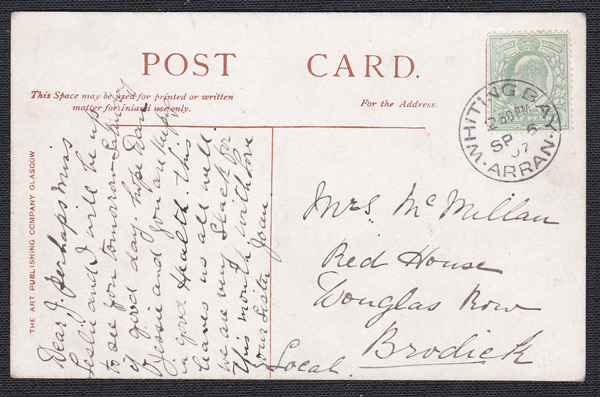 POST CARD.
This Space may be used for printed or written
matter for inland use only.
For the Address.
THE ART PUBLISHING COMPANY GLASGOW
WHITING BAY
SP 6
07
ARRAN
Dear J. perhaps Miss
Leslie and I will be up
to see you tomorrow Saturday
if good day. hope Dan
Jessie and you are keeping
in good Health. this
leaves us all well.
we are very slack for
this month with love
your sister Jean.
Mrs. Mc Millan
Red House
Douglas Row
Brodick
Local.